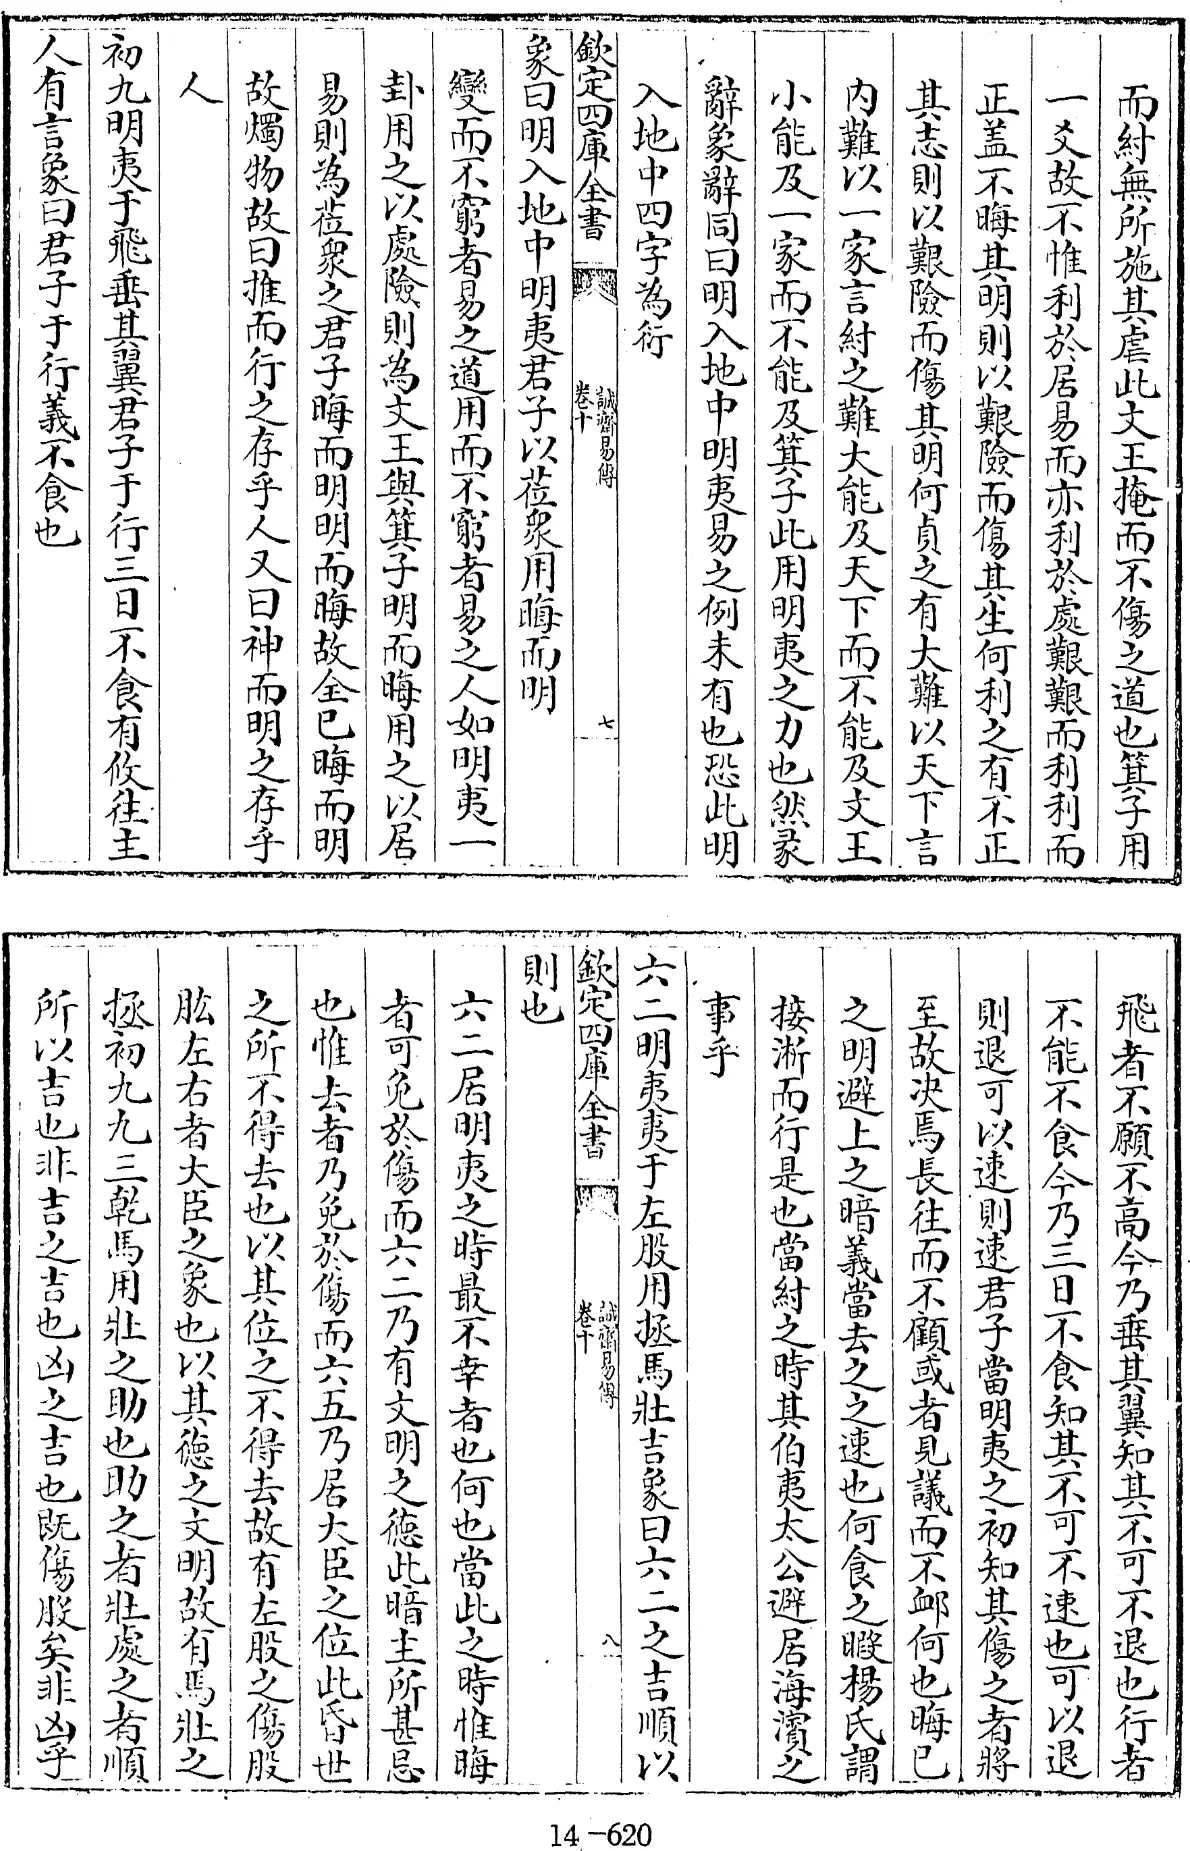 而紂無所施其虐此文王掩而不傷之道也箕子用
一爻故不惟利於居易而亦利於處艱艱而利利而
正盖不晦其明則以艱險而傷其生何利之有不正
其志則以艱險而傷其明何貞之有大難以天下言
内難以一家言紂之難大能及天下而不能及文王
小能及一家而不能及箕子此用明夷之力也然彖
辭象辭同曰明入地中明夷易之例未有也恐此明
入地中四字為衍
欽定四庫全書
誠齋易傳
卷十
七
象曰明入地中明夷君子以莅衆用晦而明
變而不窮者易之道用而不窮者易之人如明夷一
卦用之以處險則為文王與箕子明而晦用之以居
易則為莅衆之君子晦而明明而晦故全已晦而明
故燭物故曰推而行之存乎人又曰神而明之存乎
人
初九明夷于飛垂其翼君子于行三日不食有攸往主
人有言象曰君子于行義不食也
飛者不願不高今乃垂其翼知其不可不退也行者
不能不食今乃三日不食知其不可不速也可以退
則退可以速則速君子當明夷之初知其傷之者將
至故决焉長往而不顧或者見議而不䘏何也晦已
之明避上之暗義當去之之速也何食之暇楊氏謂
接淅而行是也當紂之時其伯夷太公避居海濱之
事乎
六二明夷夷于左股用拯馬壯吉象曰六二之吉順以
欽定四庫全書
誠齋易傳
卷十
八
則也
六二居明夷之時最不幸者也何也當此之時惟晦
者可免於傷而六二乃有文明之德此暗主所甚忌
也惟去者乃免於傷而六五乃居大臣之位此昏世
之所不得去也以其位之不得去故有左股之傷股
肱左右者大臣之象也以其德之文明故有馬壯之
拯初九九三乾馬用壯之助也助之者壯處之者順
所以吉也非吉之吉也凶之吉也既傷股矣非凶乎
14-620